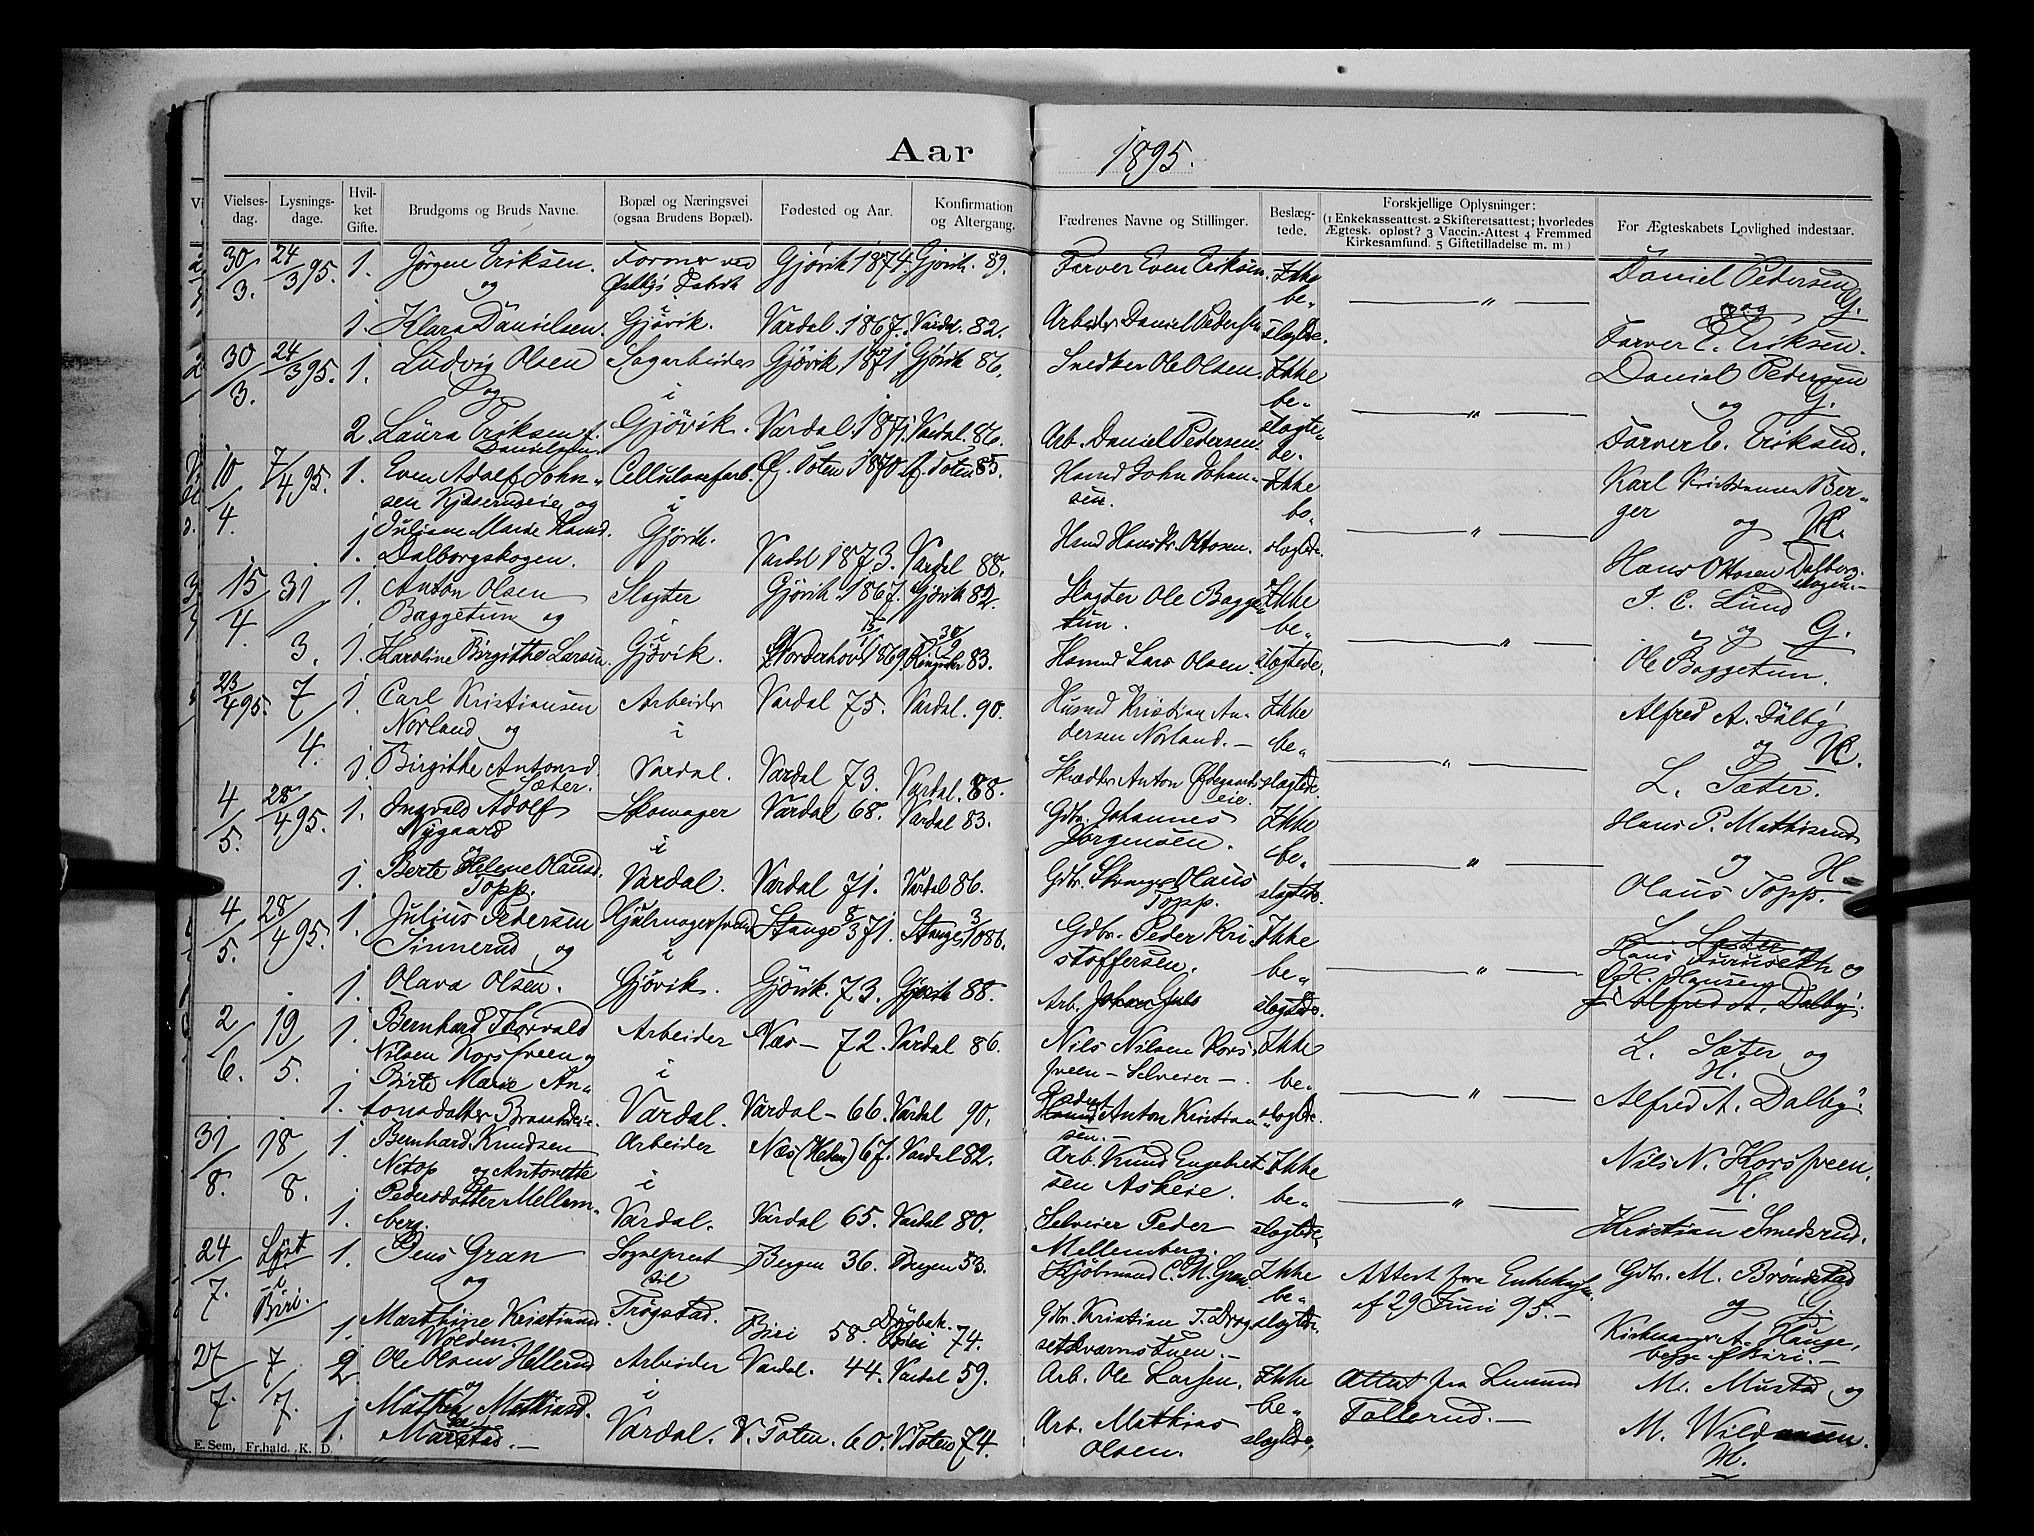 Aar 1895.
Vielses-dag. Lysnings-dage. Hvil-ket Gifte. Brudgoms og Bruds Navne. Bopæl og Næringsvei (ogsaa Brudens Bopæl). Fødested og Aar. Konfirmation og Altergang. Fædrenes Navne og Stillinger. Beslæg-tede. Forskjellige Oplysninger: (1 Enkekasseattest. 2 Skifteretsattest; hvorledes Ægtesk. opløst? 3 Vaccin.-Attest 4 Fremmed Kirkesamfund. 5 Giftetilladelse m. m) For Ægteskabets Lovlighed indestaar.
30/3. 24/3 95. 1. Jörgen Eriksen. Former ved Gjövik 1874. Gjövik. 89. Farver Even Eriksen. Ikke Daniel Pedersen
og Fabrik be- — " — og G.
i
1. Klara Danielsen. Gjövik. Vardal. 1867. Vardal. 82. Arbeider Daniel Pedersen slægtede. Farver E. Eriksen.
30/3. 24/3 95. 1. Ludvig Olsen Sagarbeider Gjövik 1871 Gjövik 86. Snedker Ole Olsen. Ikke Daniel Pedersen
og i be- — " — og G.
2. Laura Eriksen f. Gjövik. Vardal. 1871. Vardal. 86. Arb. Daniel Pedersen. slægte- Farver E. Eriksen.
Danielsen. de.
10/4. 7/4 95. 1. Even Adolf John- Cellulosefarb. Ø. Toten 1870 Ø. Toten 85. Hmd John Johan- Ikke Karl Kristiansen Ber-
sen Kjöserudeie og i sen. be- ger
1. Juliane Marie Hansd. Gjövik. — " — og V.
Dalborgskogen. Vardal 1873. Vardal 88. Hmd Hans Kr. Ottosen. slægtede. Hans Ottosen Dalborg-
skogen.
15/4. 31/3. 1. Anton Olsen Slagter Gjövik 1867. Gjövik 82. Slagter Ole Bagge- Ikke J. C. Lund
Baggetun og i tun. be- — " — og G.
1. Karoline Birgithe Larsen. Gjövik. Norderhov 1869 Ringerike 83. Hmd Lars Olsen. slægtede. Ole Baggetun.
23/4 95. 7/4. 1. Carl Kristiansen Arbeider Vardal 75. Vardal. 90. Husmd Kristian An- Ikke Alfred A. Dalby
Norland og i dersen Norland. — be- og V.
1. Birgithe Antonsd. Vardal. Vardal 73. Vardal. 88. Skrædder Anton Ödegaards- slægtede — " — L. Sæter.
Sæter. eie.
4/5. 28/4 95. 1. Ingvald Adolf Skomager Vardal 68. Vardal 83. Gdbr. Johannes Ikke Hans P. Mathisrud
Nygaard i Jørgensen. be- — " — og H
1. Berte Helene Olausd. Vardal. Vardal 71. Vardal 86. Gdbr. Olaus slægtede. Olaus Topp.
Topp. Topp.
4/5. 28/4 95. 1. Julius Pedersen Hjulmagersvend Stange 8/3 71. Stange 3/10 86. Gdbr. Peder Kri- Ikke L. Sæter
Sinnerud og i stoffersen. be- — " — Hans Furuseth og
1. Olava Olsen. Gjövik. Gjövik. 73. Gjövik 88. Arb. Johan slægtede. H. Hansen
Alfred A. Dalby.
2/6. 19/5. 1. Bernhard Thorvald Arbeider Næs — 72. Vardal 86. Nils Nilsen Kors- Ikke L. Sæter og
Nilsen Korsfveen og i fveen — Selveier —. be- H.
1. Birte Marie An- — " —
tonsdatter Vardal. Vardal — 66. Vardal 90. Hmd Anton Kristian- slægtede. Alfred A. Dalby.
sen. —
31/8. 18/8. 1. Bernhard Knudsen Arbeider Næs (Hedm) 67. Vardal 82. Arb. Knud Engebret- Ikke Nils N. Korsfveen.
Netop og Antonette i sen Askeie. be- — " — H.
1. Pedersdatter Mellem- Vardal. Vardal 65. Vardal 80. Selveier Peder slægtede Kristian Smedsrud.
berg. Mellemberg.
24/7. Lyst i Biri. 1. Jens Gran Sogneprest Bergen 36. Bergen 53. Kjöbmand C. M. Gran Ikke Attest fra Enkekassen Gdbr. M. Brøndstad
og til be- af 29 Juni 95. — og G.
1. Marthine Kristiansd. Trögstad. Biri 58. Dröbak. Biri 74. Gdbr. Kristian T. slægtede. Kirkesanger A. Hauge,
Wolden. begge af Biri. —
27/7. 7/7. 2 Ole Olsen Hellerud Arbeider Vardal. 44. Vardal 59. Arb. Ole Larsen. Ikke Attest fra Lensmd M. Mustad og
og i be- Tollerud. —
1. Mathea Mathiasd. Vardal. V. Toten. 60. V. Toten 74. Arb. Mathias slægtede, M. Wildmann.
Marstad. — Olsen. H.
E. Sem, Fr.hald. K. D.